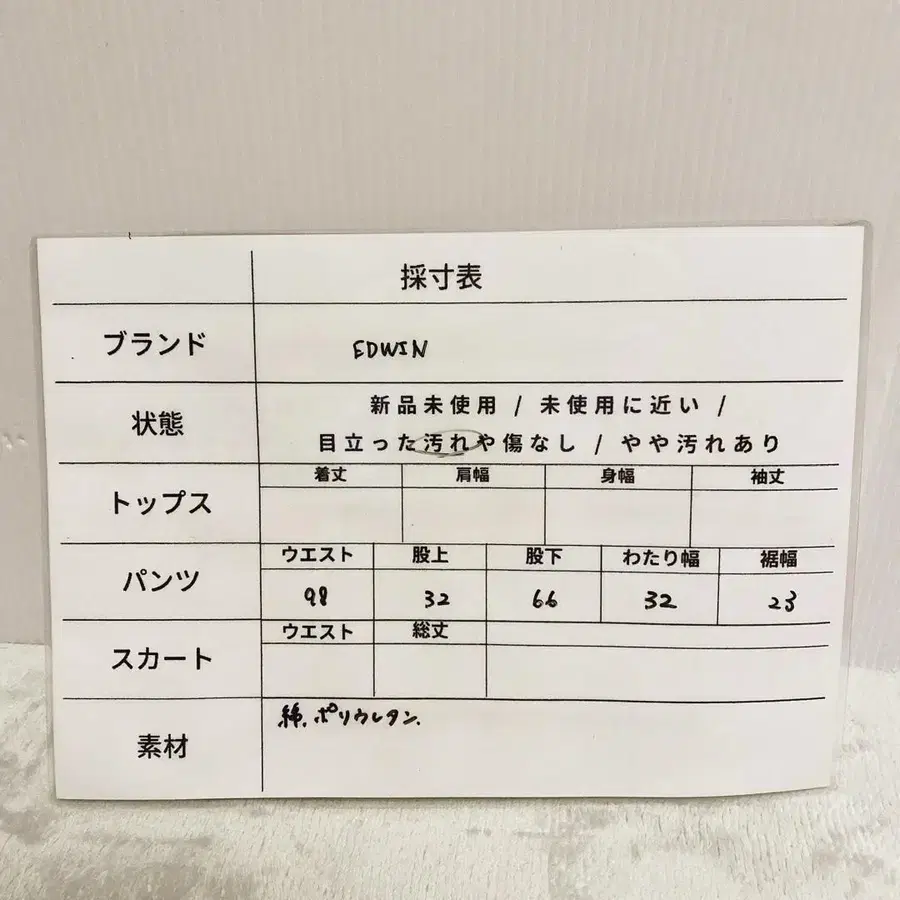 採寸表
ブランド EDWIN
状態 新品未使用 / 未使用に近い /
目立った汚れや傷なし / やや汚れあり
トップス 着丈 肩幅 身幅 袖丈
パンツ ウエスト 股上 股下 わたり幅 裾幅
98 32 66 32 23
スカート ウエスト 総丈
素材 綿、ポリウレタン、